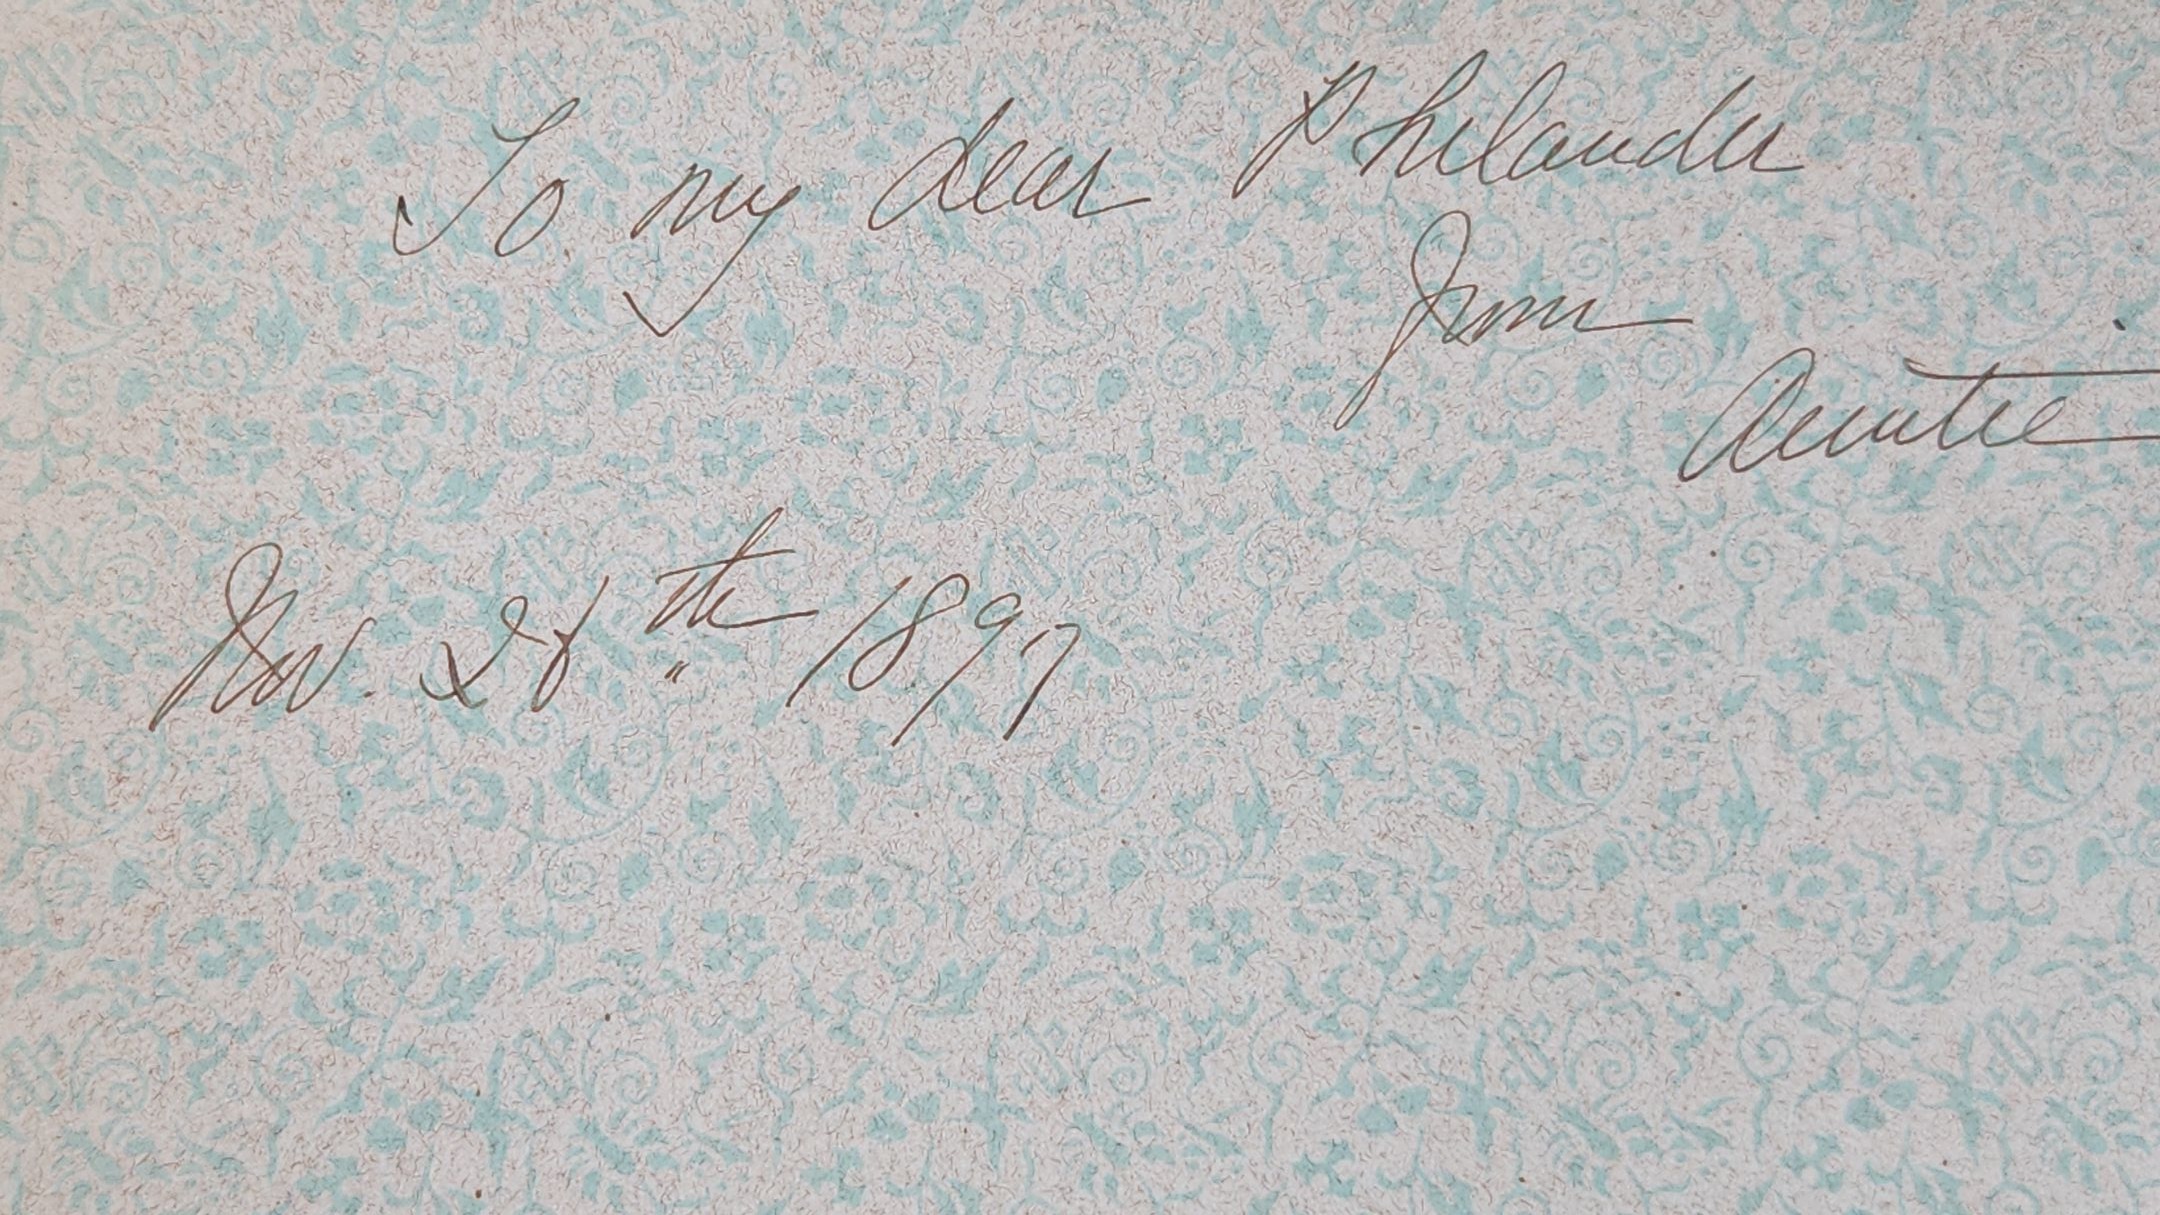 To my dear Philander
from
Auntie
Nov. 28th 1897